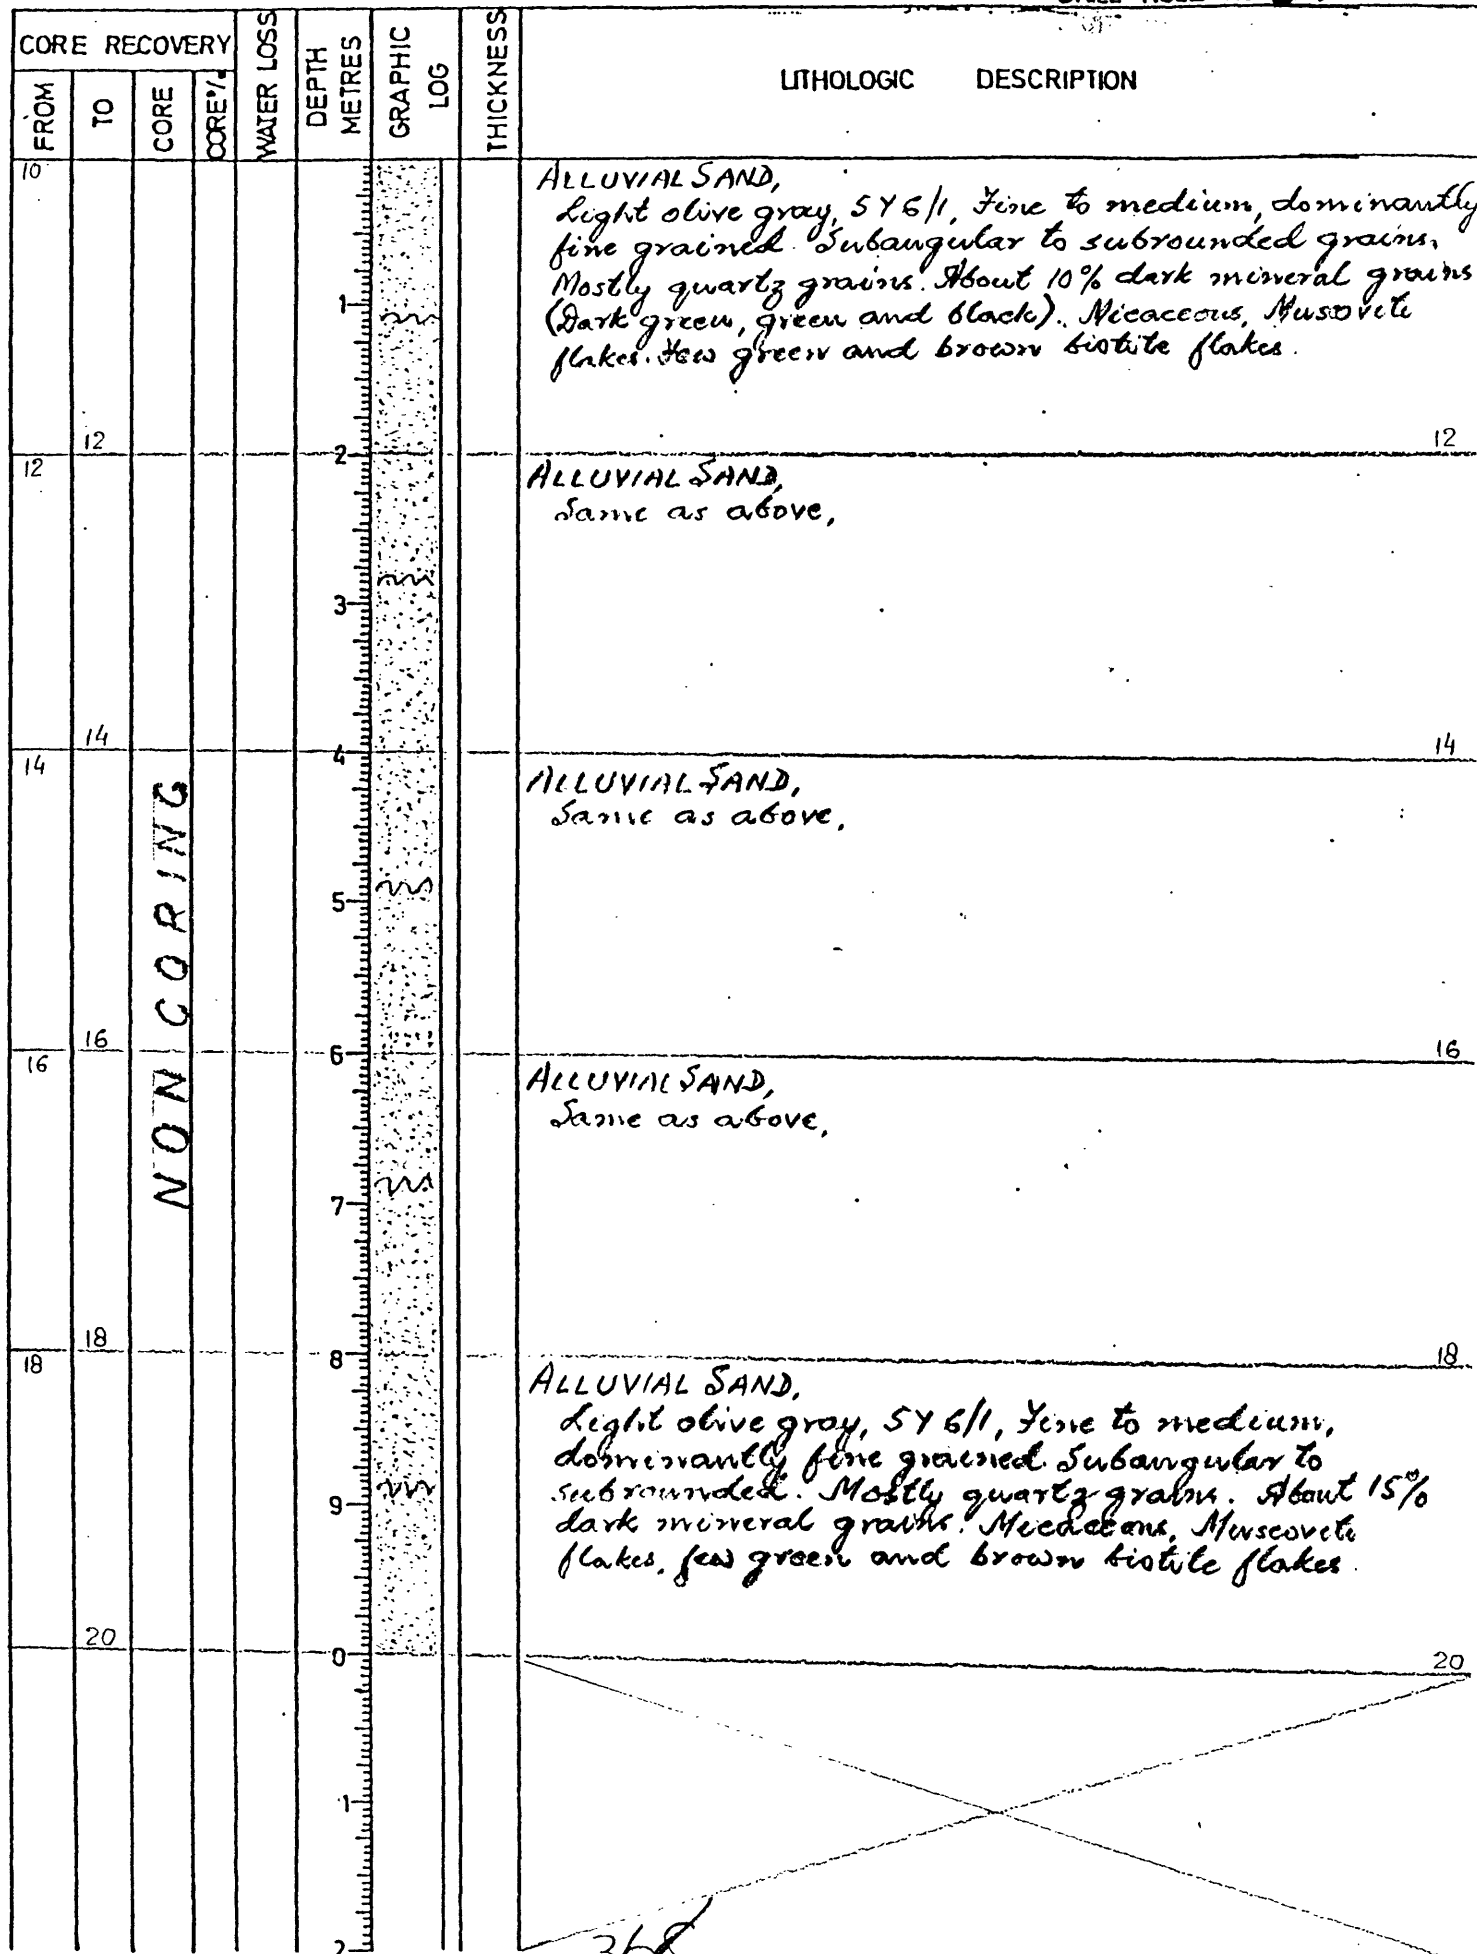 CORE RECOVERY
FROM
TO
CORE
CORE%
WATER LOSS
DEPTH METRES
GRAPHIC LOG
THICKNESS
LITHOLOGIC DESCRIPTION
10
ALLUVIAL SAND,
Light olive gray, 5Y6/1, Fine to medium, dominantly
fine grained. Subangular to subrounded grains,
Mostly quartz grains. About 10% dark mineral grains
1
(Dark green, green and black). Micaceous, Musovite
flakes. Few green and brown biotite flakes.
12
2
12
12
ALLUVIAL SAND,
Same as above,
3
14
4
14
14
ALLUVIAL SAND,
Same as above,
NON CORING
5
16
6
16
16
ALLUVIAL SAND,
Same as above,
7
18
8
18
18
ALLUVIAL SAND,
Light olive gray, 5Y 6/1, Fine to medium,
dominantly fine grained. Subangular to
subrounded. Mostly quartz grains. About 15%
9
dark mineral grains. Micaceous, Muscovite
flakes, few green and brown biotite flakes.
20
0
20
1
2
368